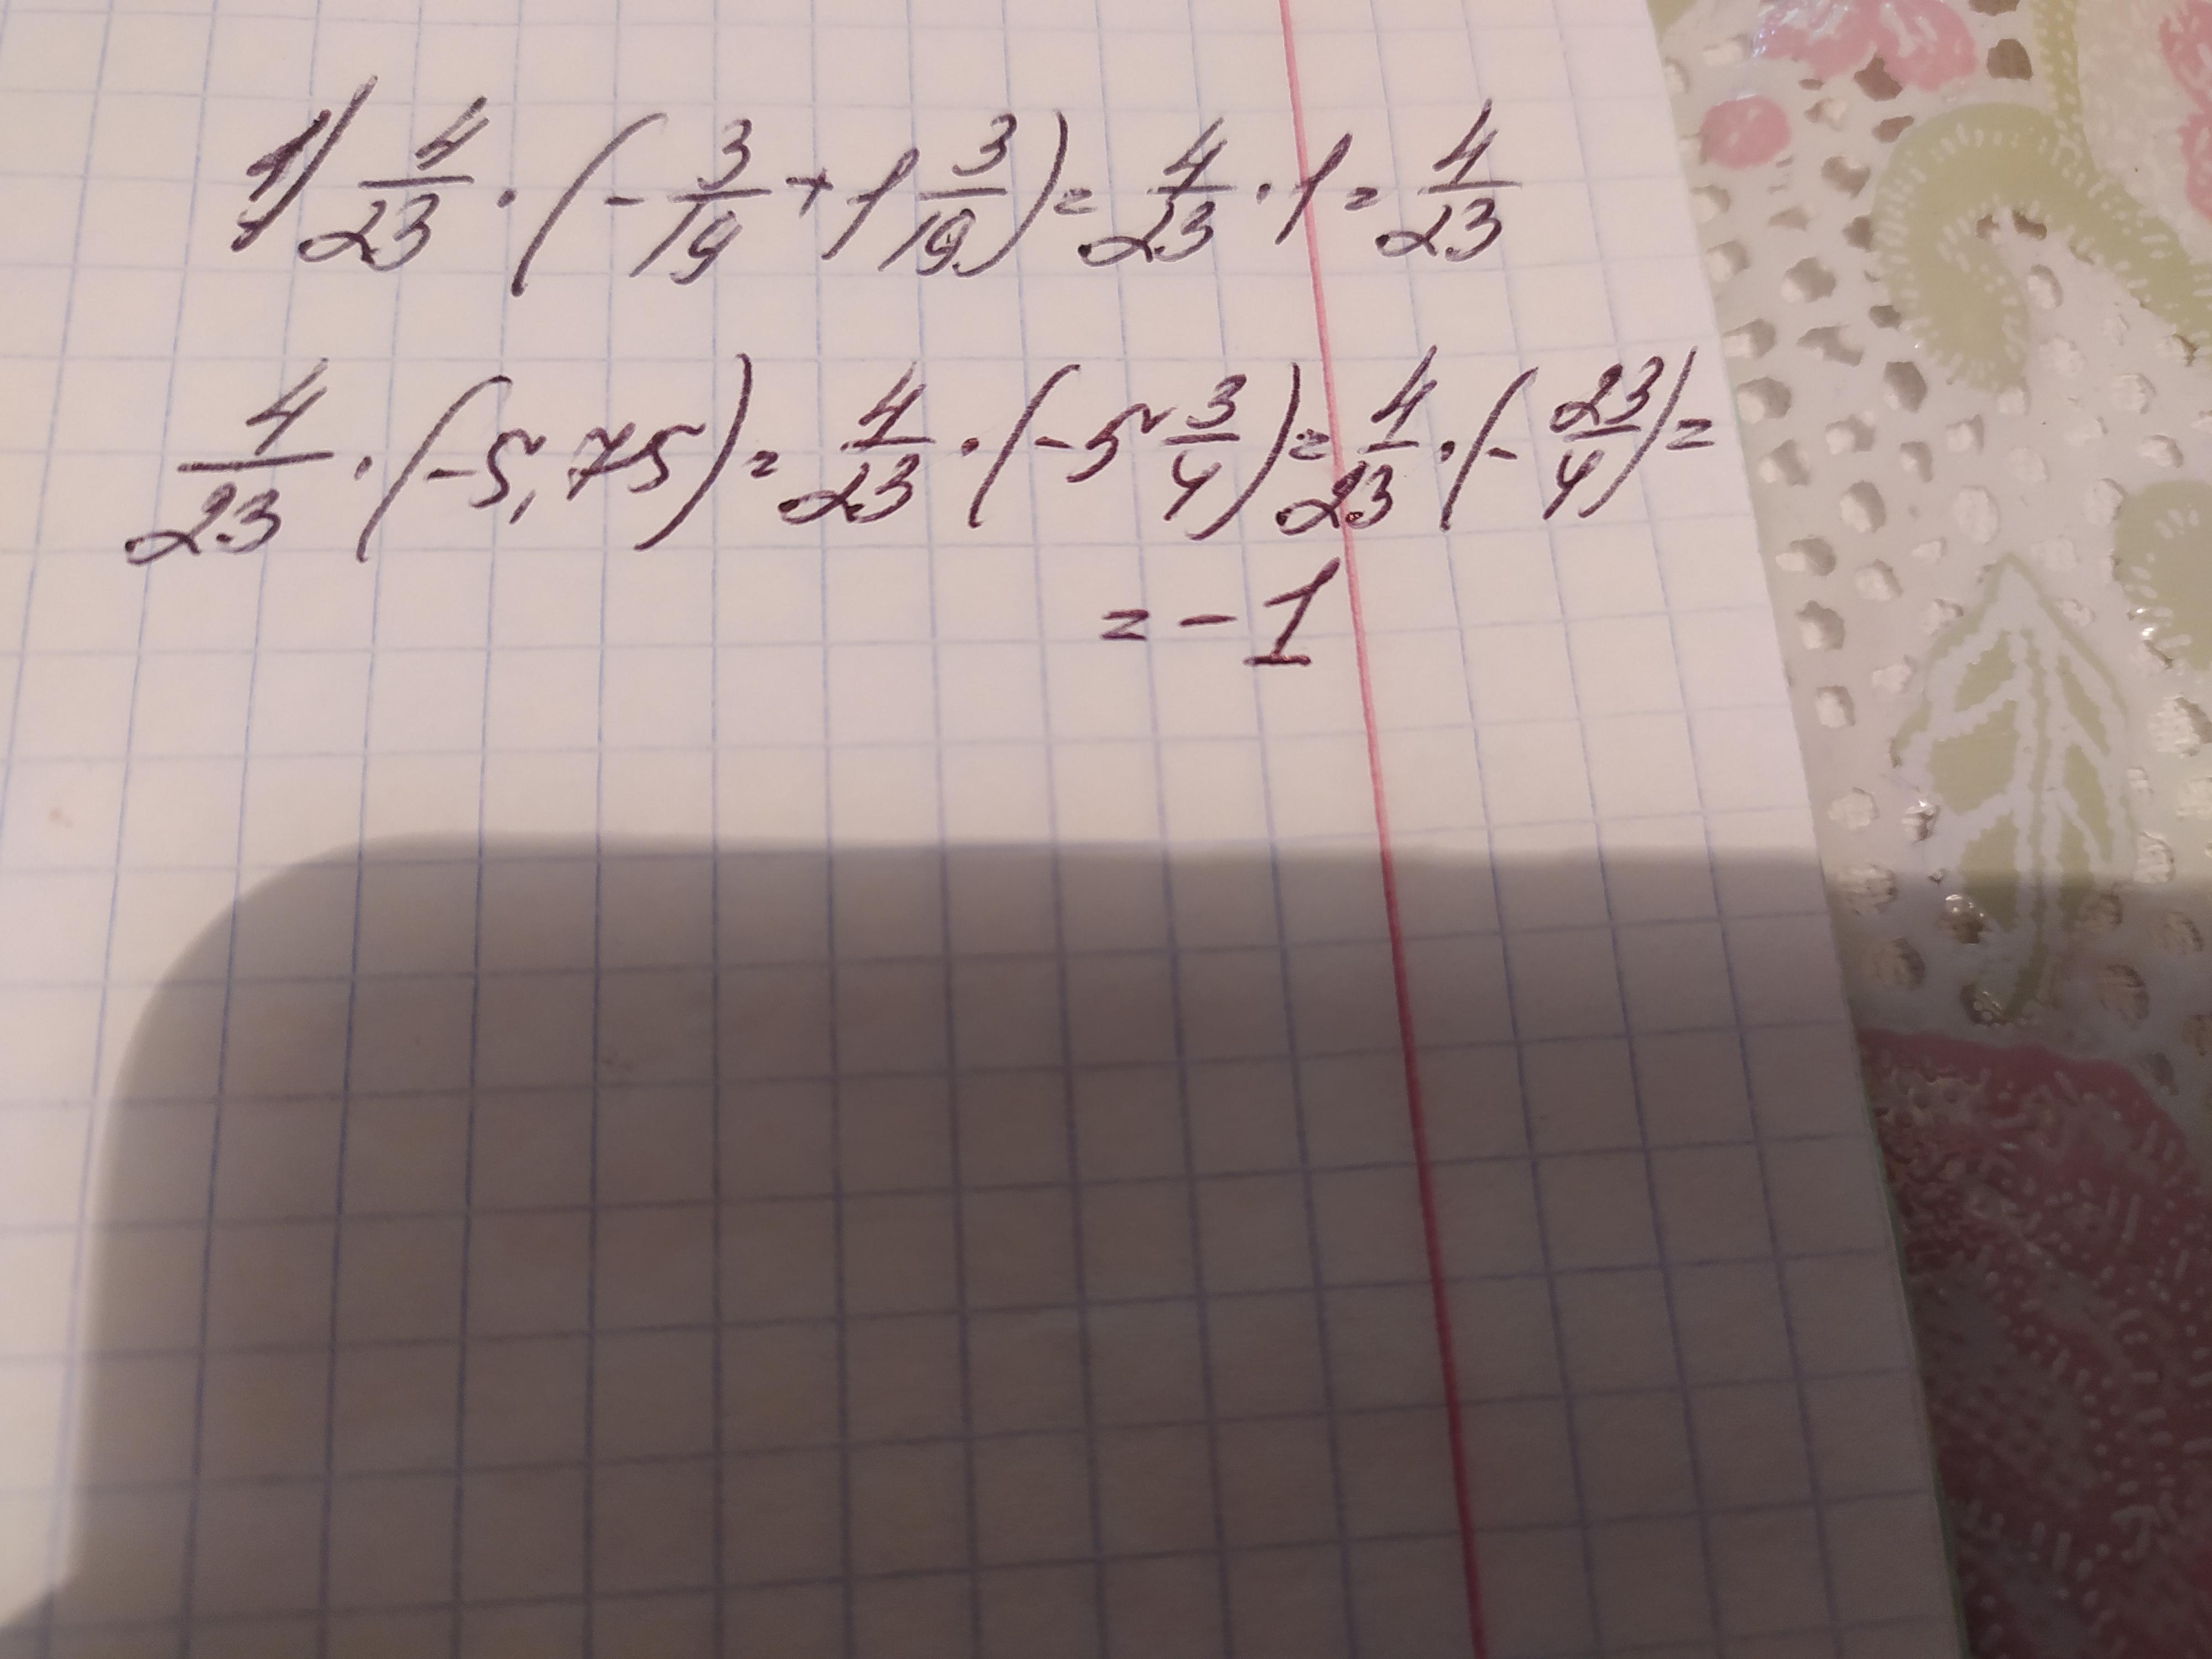 1) 4/23 · (- 3/19 + 1 3/19) = 4/23 · 1 = 4/23
4/23 · (-5,75) = 4/23 · (-5 3/4) = 4/23 · (- 23/4) =
= - 1